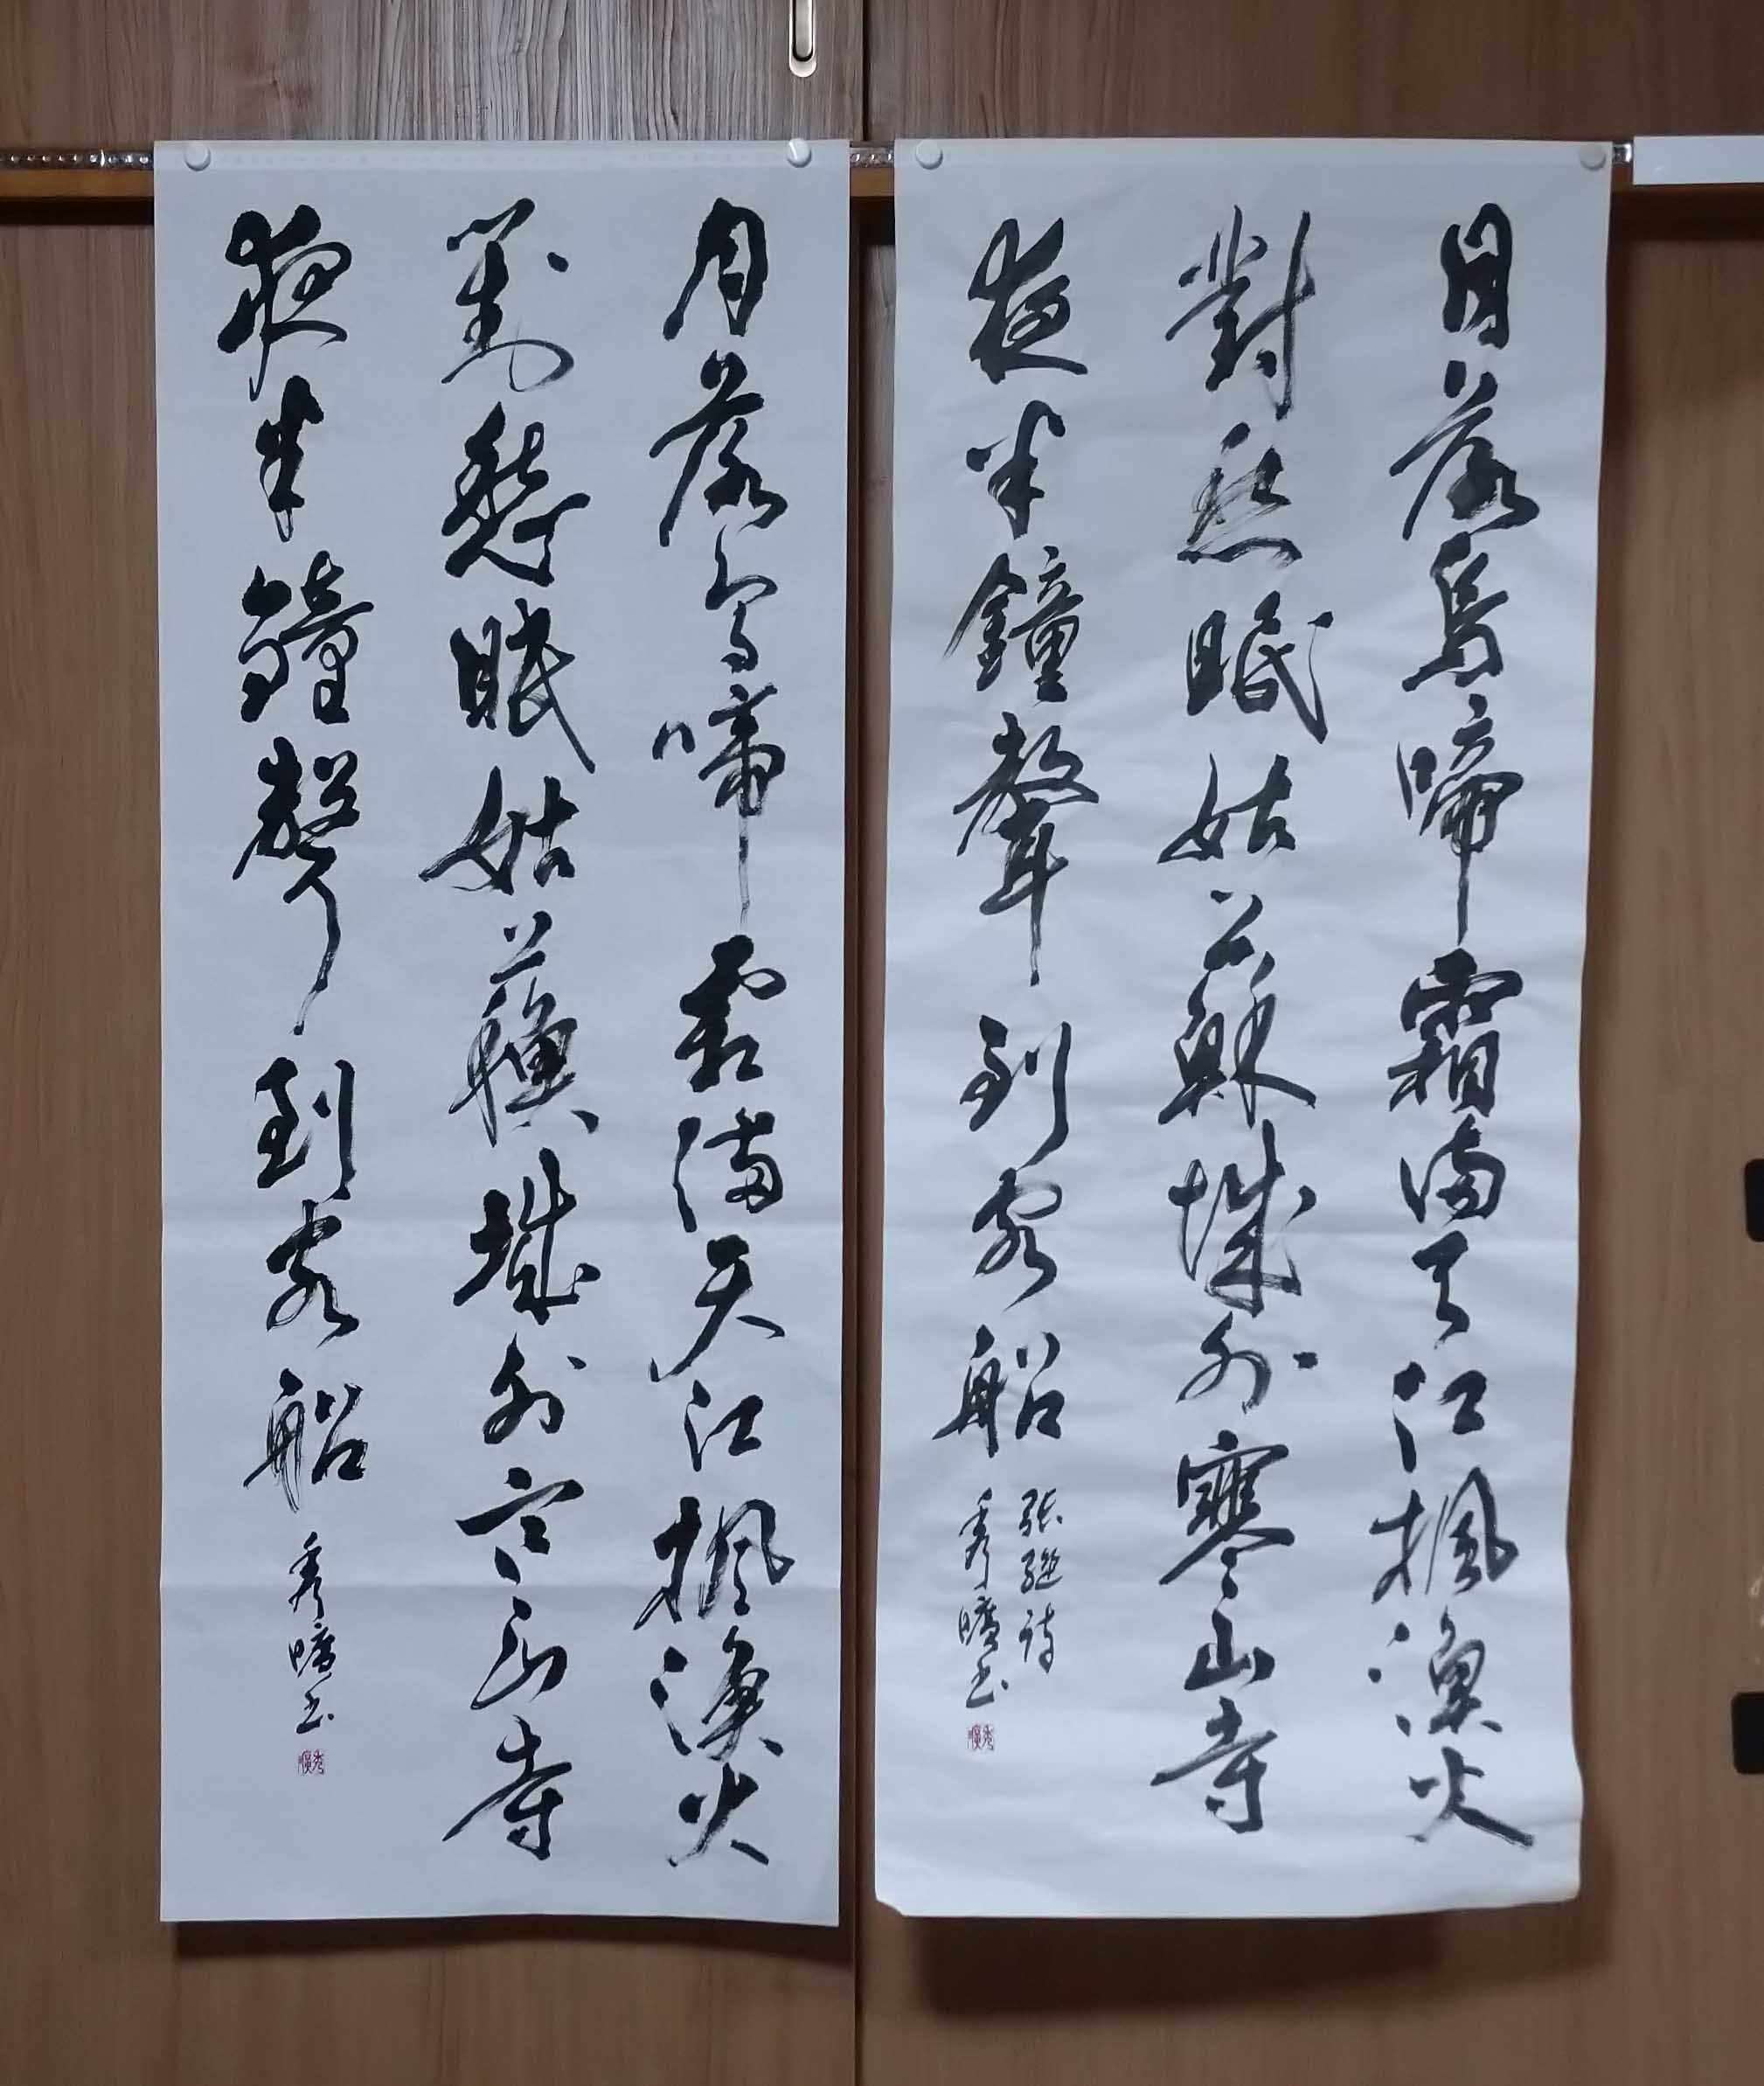 月落烏啼霜滿天江楓漁火
對愁眠姑蘇城外寒山寺
夜半鐘聲到客船
張繼詩
秀曠書
秀曠
月落烏啼霜滿天江楓漁火
對愁眠姑蘇城外寒山寺
夜半鐘聲到客船
秀曠書
秀曠